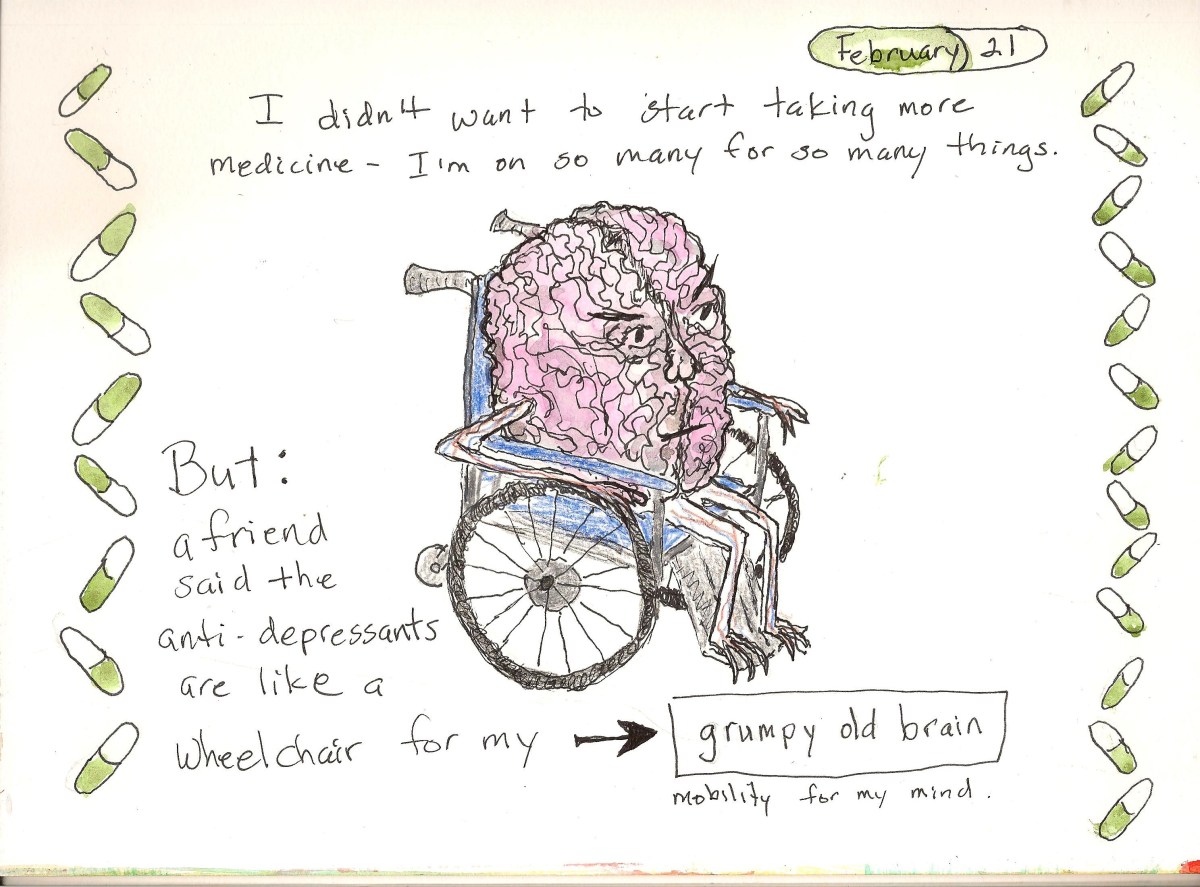 February 21
I didn't want to start taking more
medicine - I'm on so many for so many things.
But:
a friend
said the
anti-depressants
are like a
wheelchair for my → grumpy old brain
mobility for my mind.